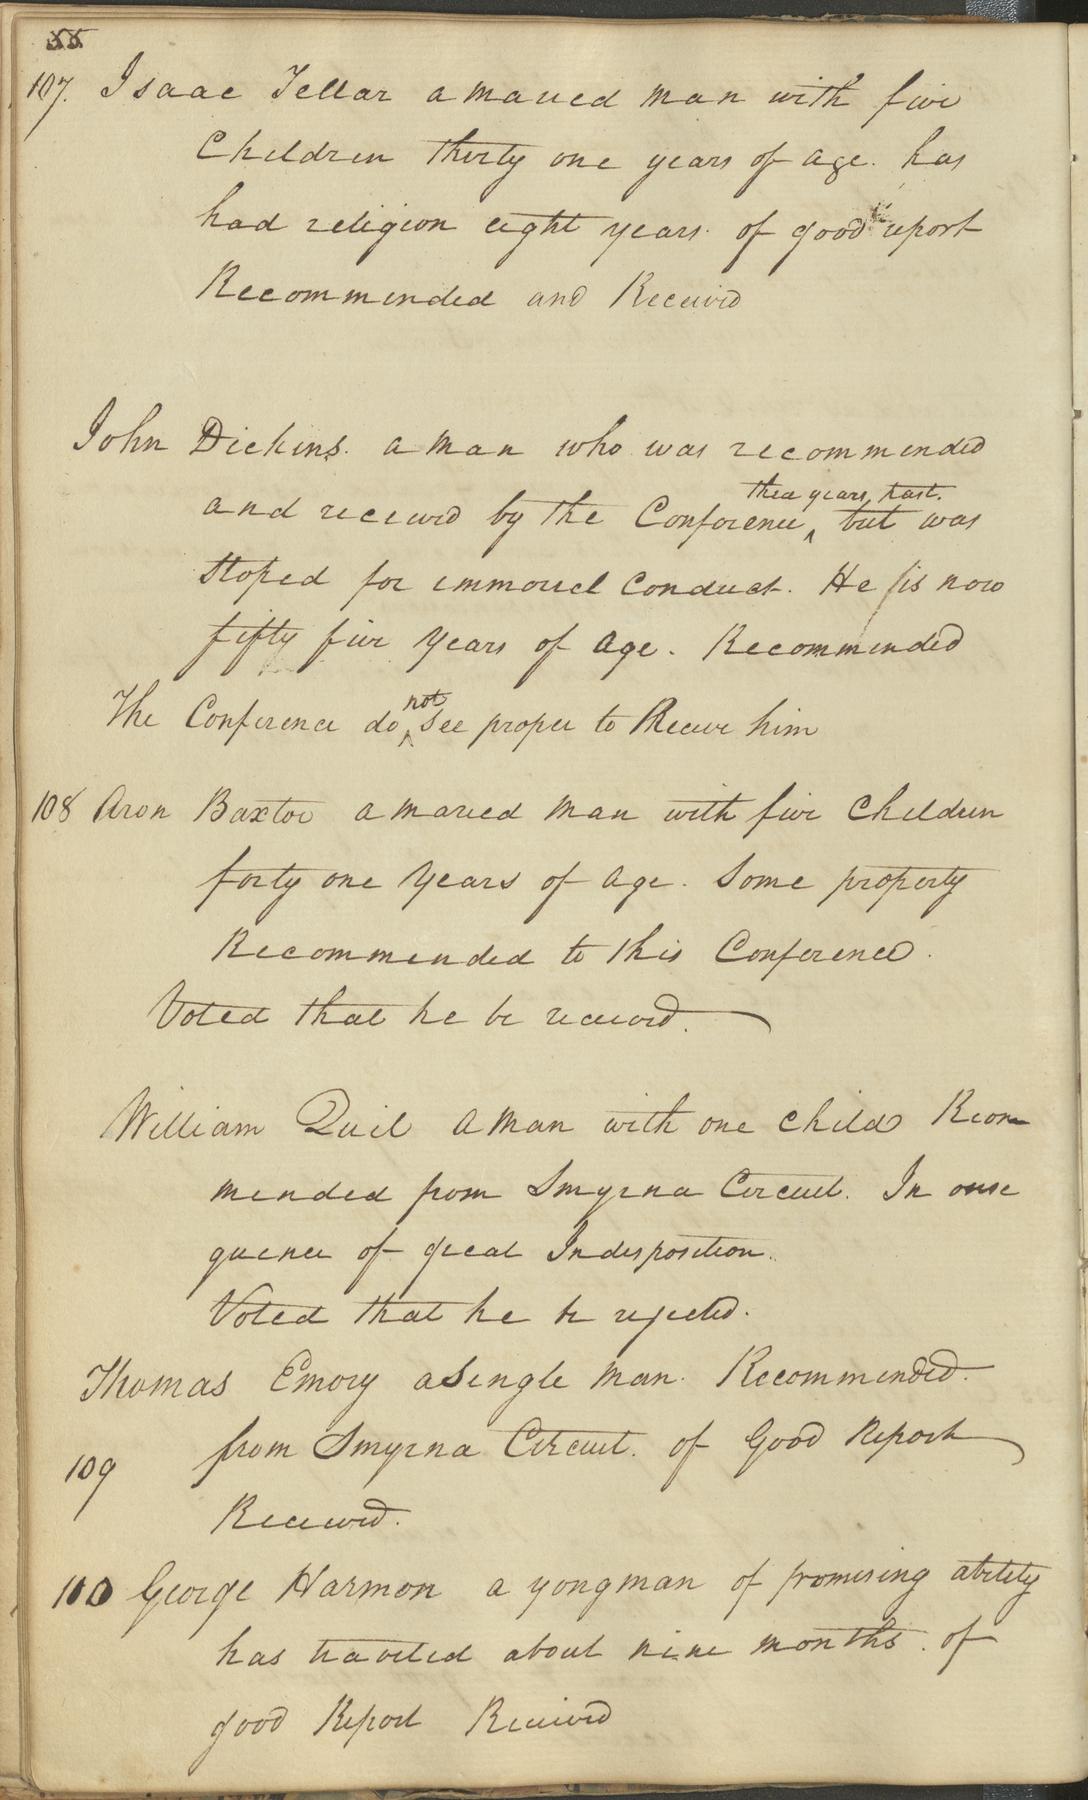 55
107. Isaac Tellar a maried man with five
Children thirty one years of age. has
had religion eight years. of good report
Recommended and Received
John Dickins. a man who was recommended
and received by the Conference ^ three years past. but was
stoped for immorel Conduct. He is now
fifty five years of age. Recommended
The Conference do ^ not see proper to Receive him
108 Aron Baxtor a maried man with five Children
forty one years of age. Some property
Recommended to this Conference.
Voted that he be received.
William Quil a man with one child Recom
mended from Smyrna Circuit. In conse
quence of great Indisposition.
Voted that he be rejected.
Thomas Emory a Single man. Recommended.
109 from Smyrna Circuit. of Good Report
Received.
110 George Harmon a yong man of promising ability
has traveled about nine months. of
good Report Received